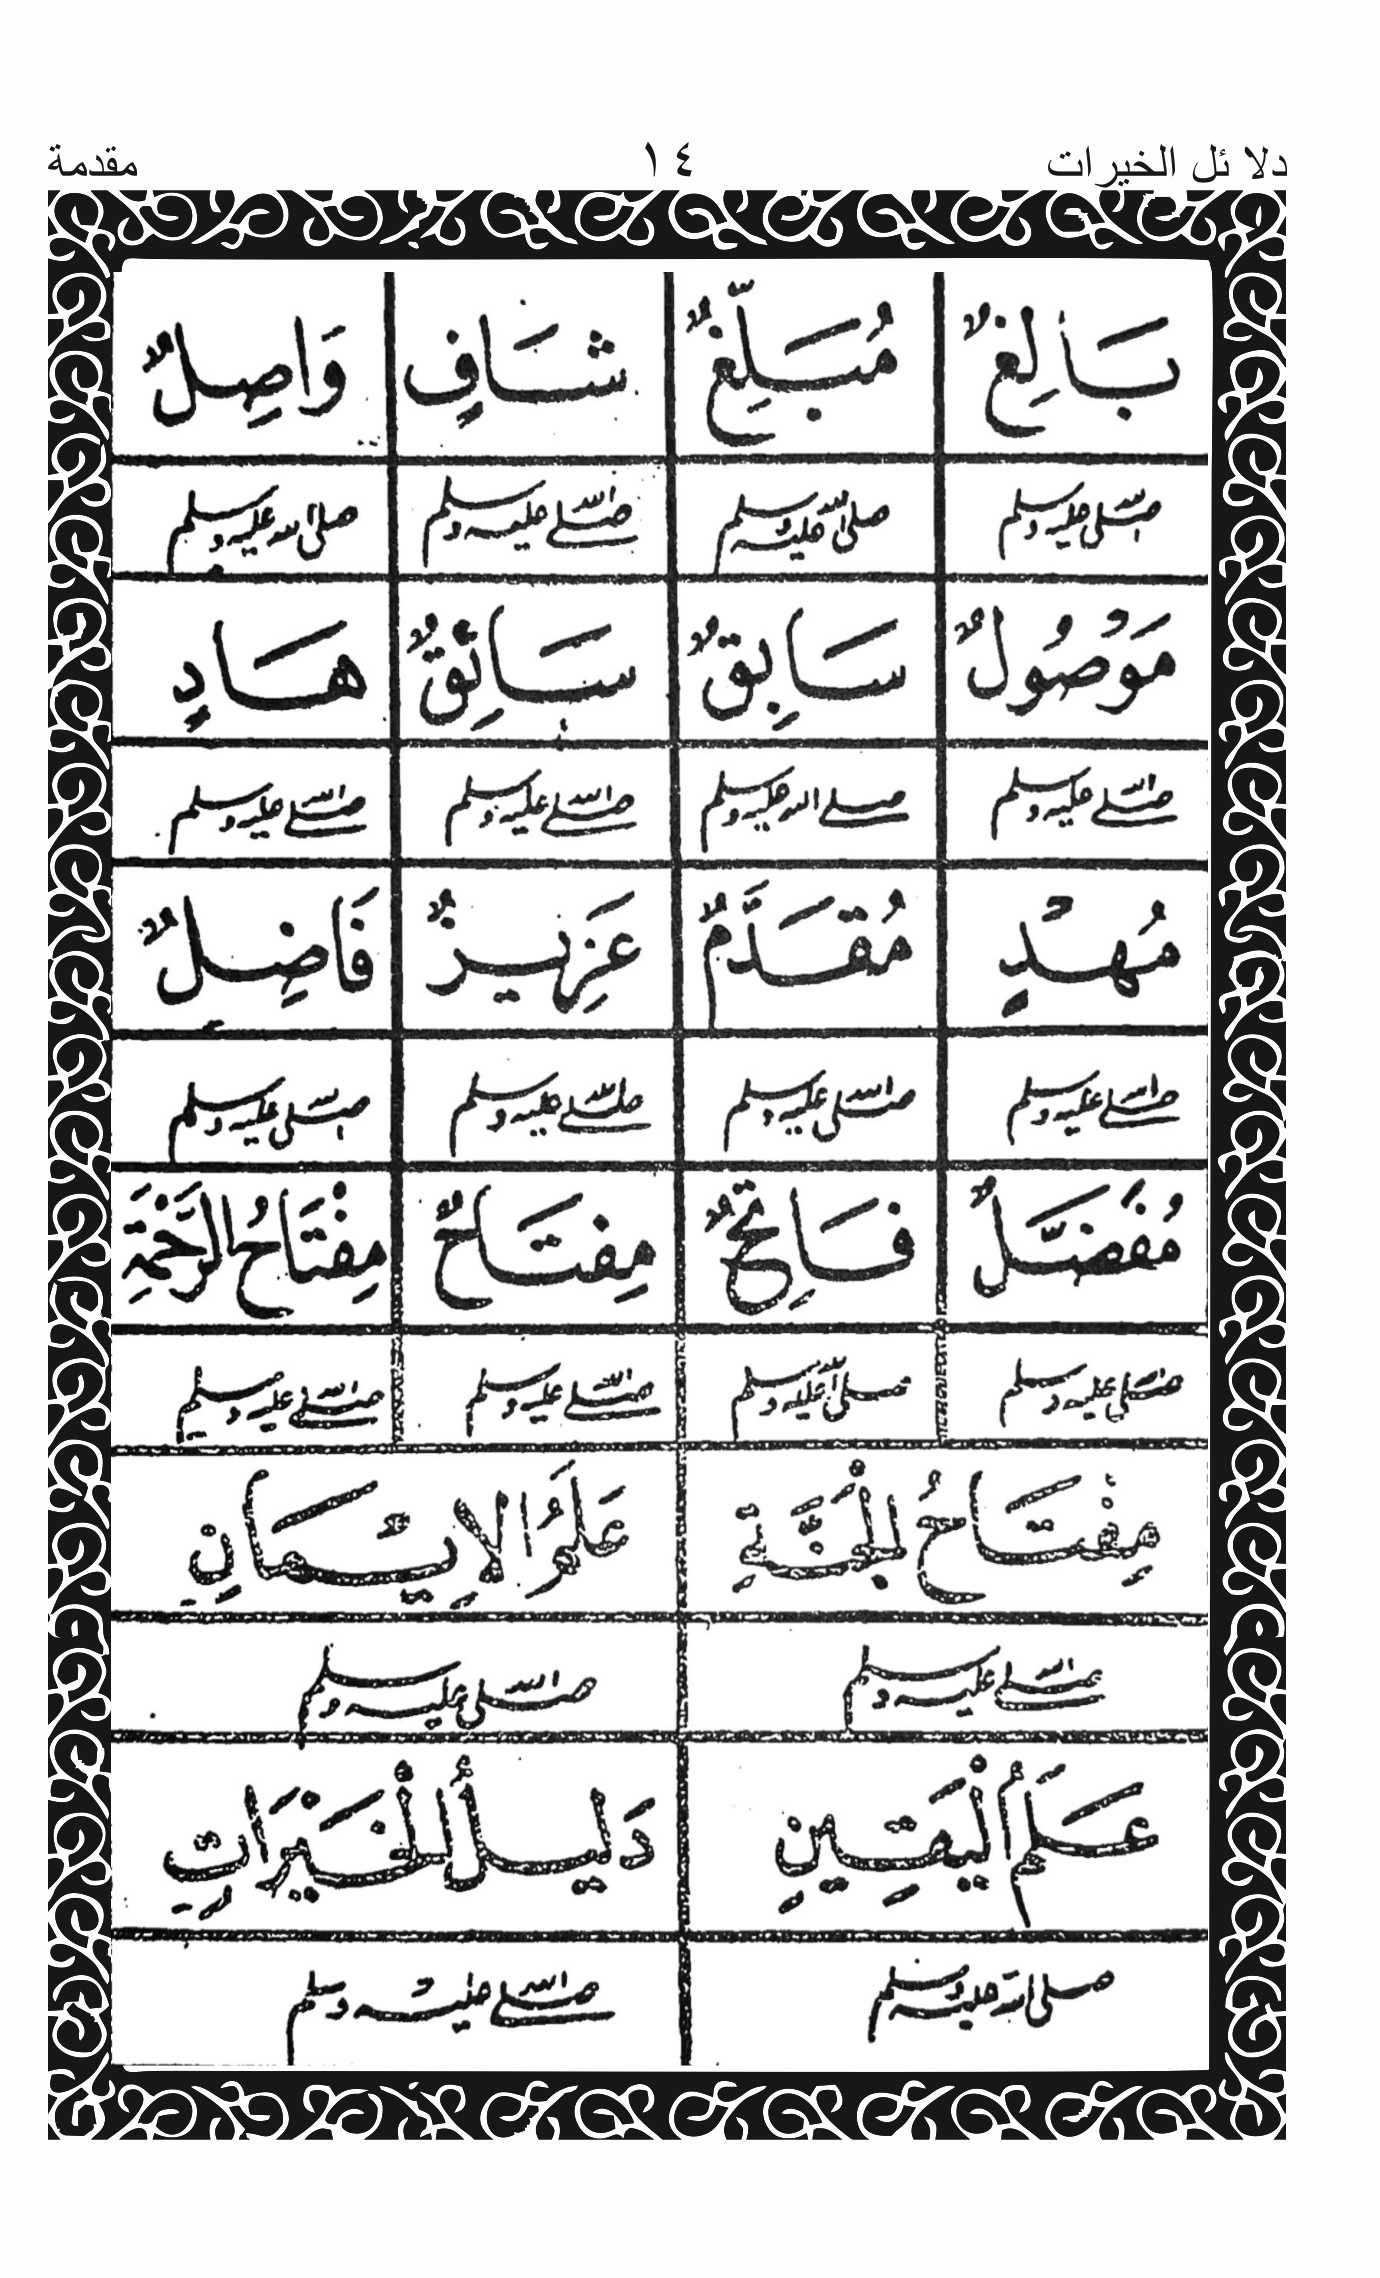 دلائل الخيرات ١٤ مقدمة
بَالِغٌ مُبَلِّغٌ شَافٍ وَاصِلٌ
صلى الله عليه وسلم صلى الله عليه وسلم صلى الله عليه وسلم صلى الله عليه وسلم
مَوْصُولٌ سَابِقٌ سَائِقٌ هَادٍ
صلى الله عليه وسلم صلى الله عليه وسلم صلى الله عليه وسلم صلى الله عليه وسلم
مُهْدٍ مُقَدَّمٌ عَزِيزٌ فَاضِلٌ
صلى الله عليه وسلم صلى الله عليه وسلم صلى الله عليه وسلم صلى الله عليه وسلم
مُفَضَّلٌ فَاتِحٌ مِفْتَاحٌ مِفْتَاحُ الرَّحْمَةِ
صلى الله عليه وسلم صلى الله عليه وسلم صلى الله عليه وسلم صلى الله عليه وسلم
مِفْتَاحُ الْجَنَّةِ عَلَمُ الْإِيْمَانِ
صلى الله عليه وسلم صلى الله عليه وسلم
عَلَمُ الْيَقِينِ دَلِيلُ الْخَيْرَاتِ
صلى الله عليه وسلم صلى الله عليه وسلم